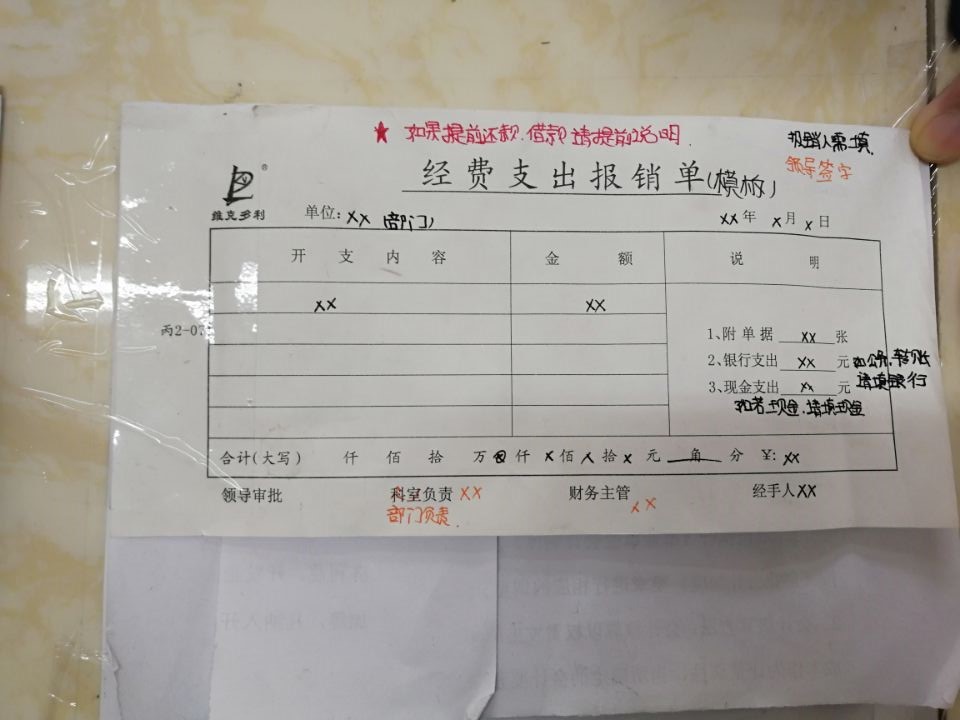 ★ 如果提前还款.借款请提前说明.
报销人需填.
领导签字
经费支出报销单(模板)
维克多利®
单位: XX (部门) XX年 X月 X日
开支内容 金额 说明
XX XX
丙2-07
1、附单据 XX 张
2、银行支出 XX 元 如公务.转账
请填银行
3、现金支出 XX 元
如若现金.请填现金
合计(大写) 仟 佰 拾 万⊗仟 X佰 X拾 X元 角 分 ¥: XX
领导审批 科室负责 XX 财务主管 XX 经手人XX
部门负责.